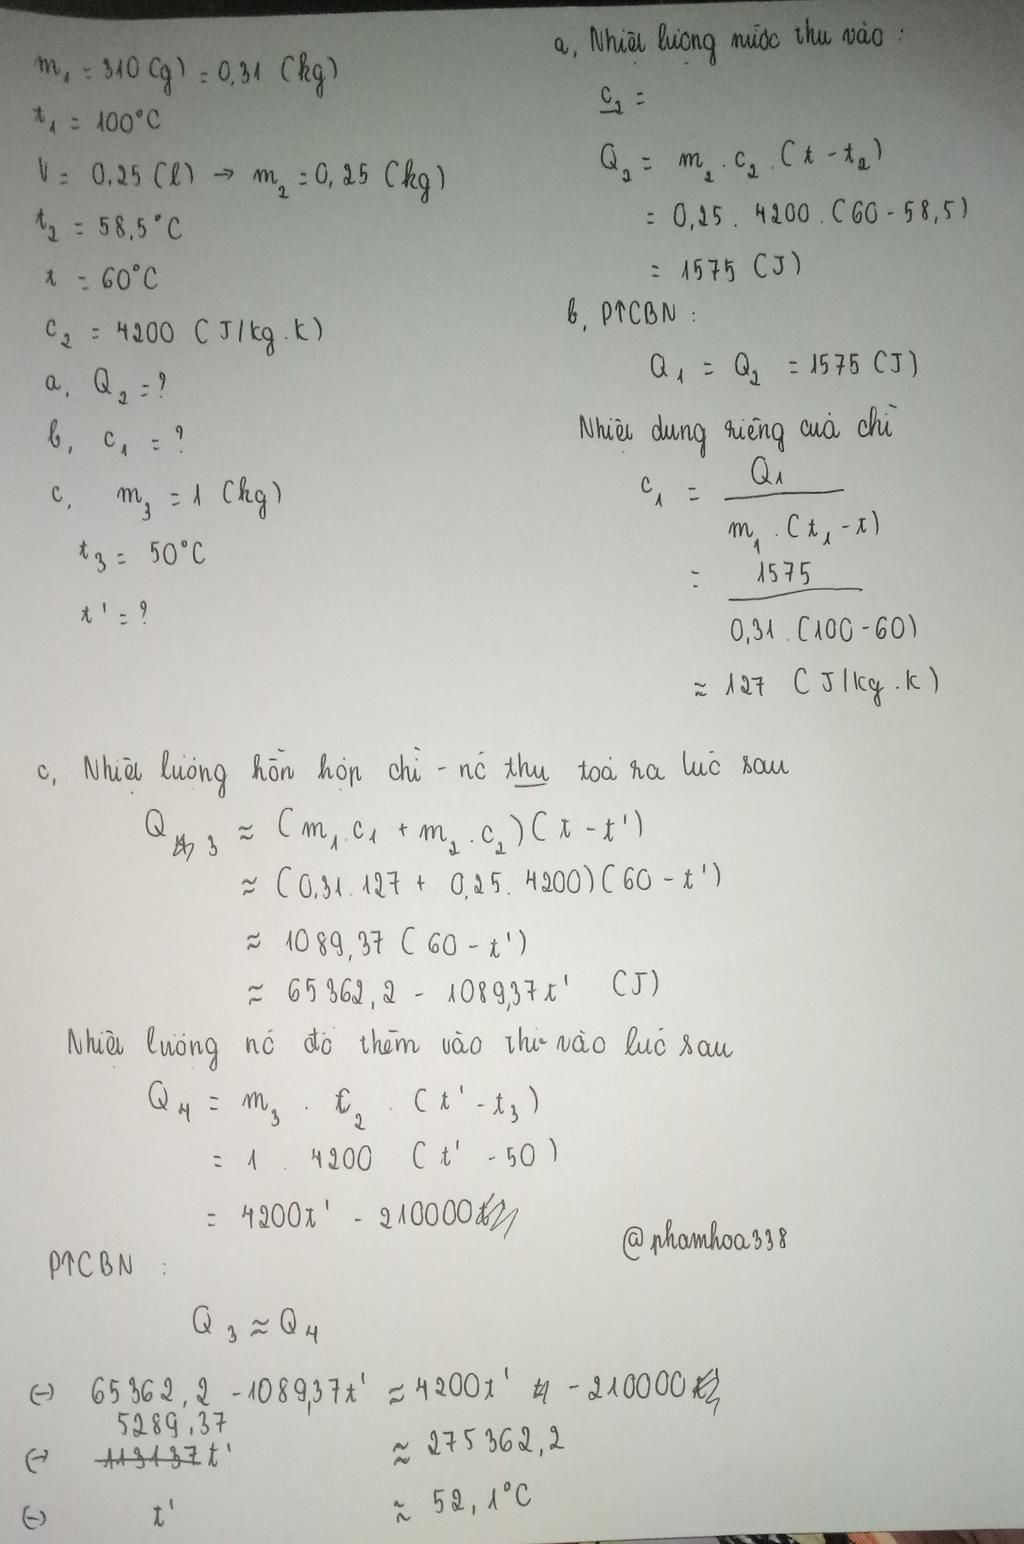 m₁ = 310 (g) = 0,31 (kg)
t₁ = 100°C
V = 0,25 (l) → m₂ = 0,25 (kg)
t₂ = 58,5°C
t = 60°C
c₂ = 4200 (J/kg.k)
a, Q₂ = ?
b, c₁ = ?
c, m₃ = 1 (kg)
t₃ = 50°C
t' = ?
a, Nhiệt lượng nước thu vào :
c₂ =
Q₂ = m₂ . c₂ . (t - t₂)
= 0,25 . 4200 . (60 - 58,5)
= 1575 (J)
b, PTCBN :
Q₁ = Q₂ = 1575 (J)
Nhiệt dung riêng của chì
c₁ = Q₁
m₁ . (t₁ - t)
= 1575
0,31 . (100 - 60)
≈ 127 (J/kg.k)
c, Nhiệt lượng hỗn hợp chì - nc thu toả ra lúc sau
Q₃ ≈ (m₁.c₁ + m₂.c₂)(t - t')
≈ (0,31.127 + 0,25.4200)(60 - t')
≈ 1089,37 (60 - t')
≈ 65362,2 - 1089,37t' (J)
Nhiệt lượng nc đổ thêm vào thu vào lúc sau
Q₄ = m₃ . c₂ . (t' - t₃)
= 1 . 4200 (t' - 50)
= 4200t' - 210000
@phamhoa338
PTCBN :
Q₃ ≈ Q₄
(-) 65362,2 - 1089,37t' ≈ 4200t' - 210000
5289,37
(-) 113137t' ≈ 275362,2
(-) t' ≈ 52,1°C